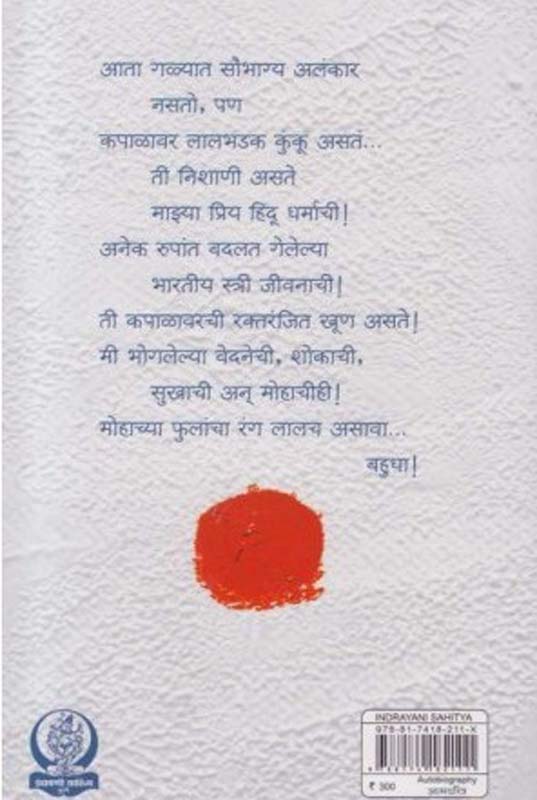 आता गळ्यात सौभाग्य अलंकार
नसतो, पण
कपाळावर लालभडक कुंकू असतं...
ती निशाणी असते
माझ्या प्रिय हिंदू धर्माची!
अनेक रुपांत बदलत गेलेल्या
भारतीय स्त्री जीवनाची!
ती कपाळावरची रक्तरंजित खूण असते!
मी भोगलेल्या वेदनेची, शोकाची,
सुखाची अन् मोहाचीही!
मोहाच्या फुलांचा रंग लालच असावा...
बहुधा!
INDRAYANI SAHITYA
978-81-7418-211-X
₹ 300
Autobiography
आत्मचरित्र